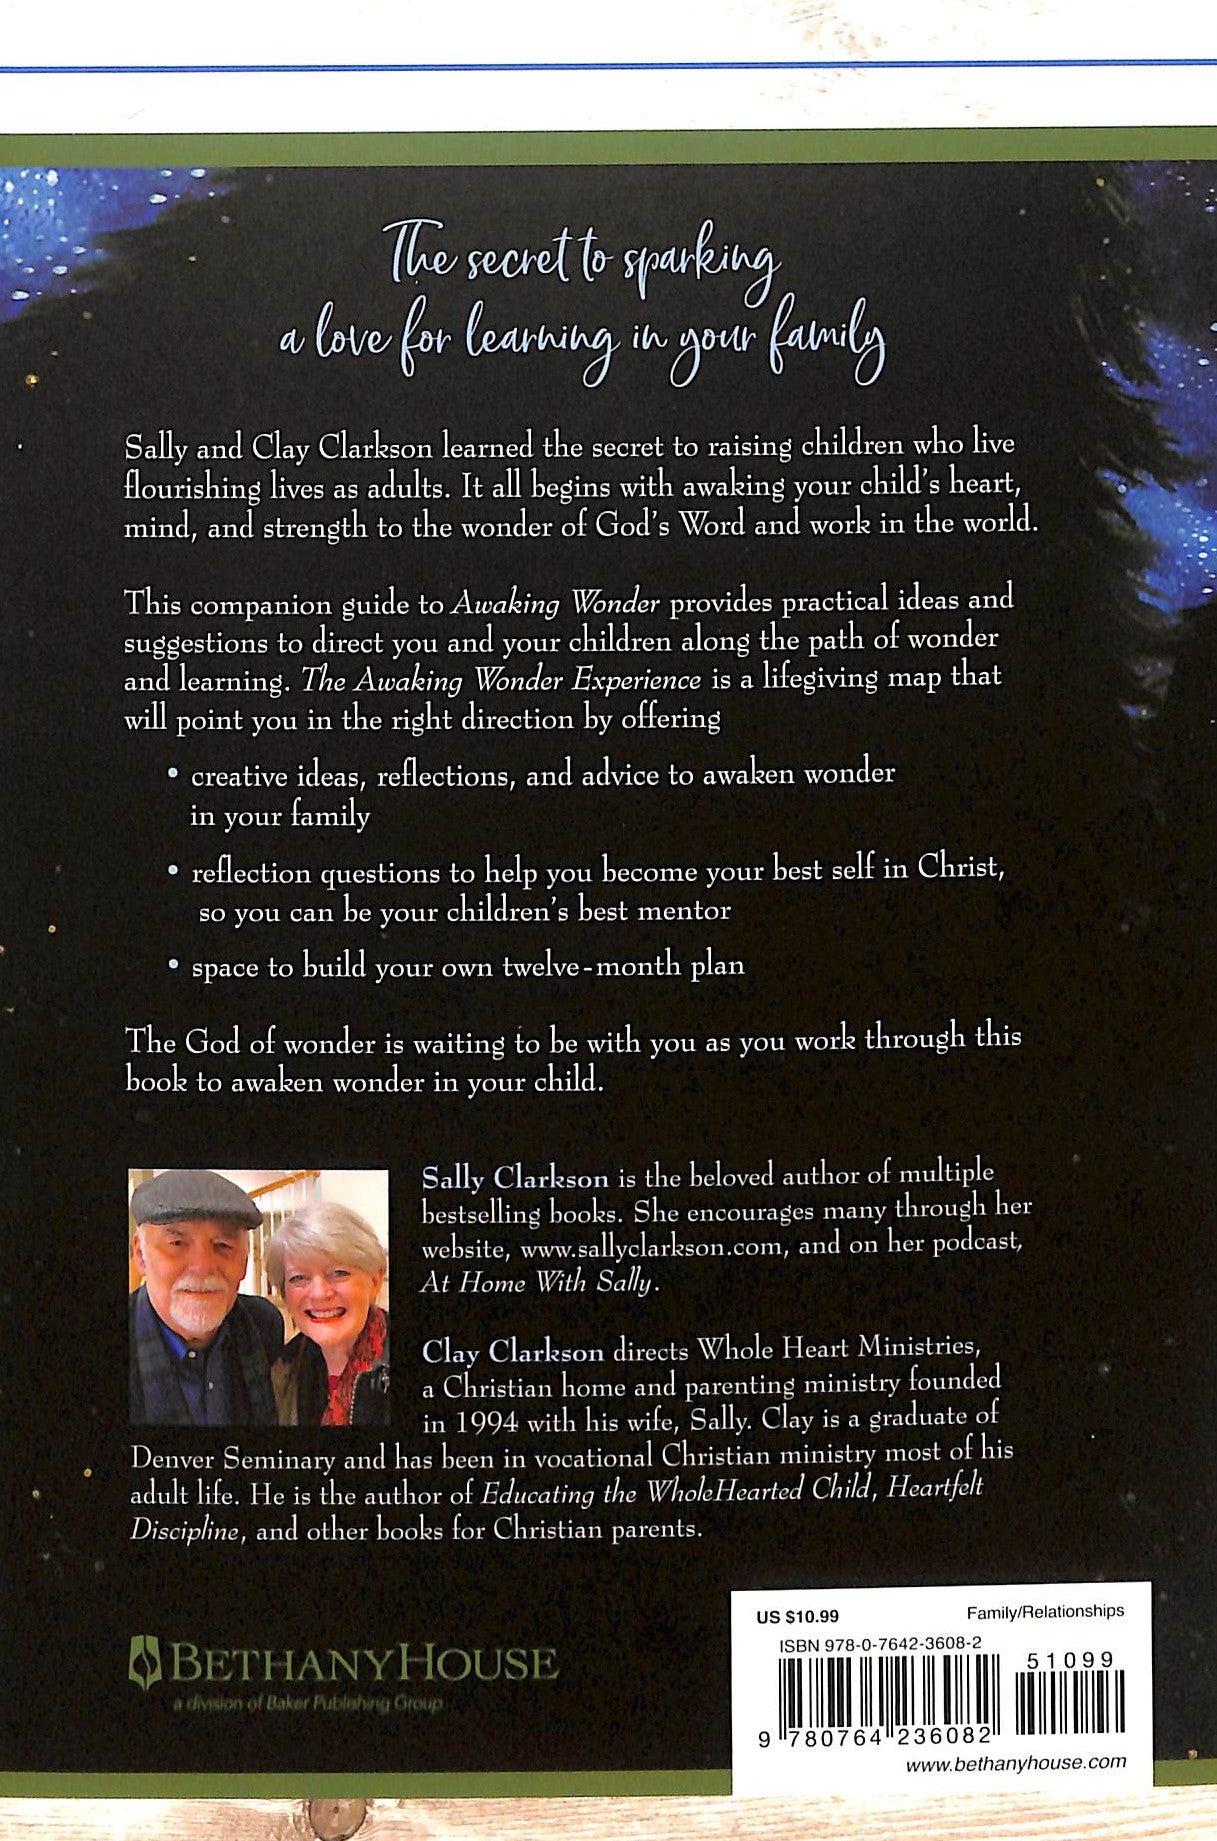 The secret to sparking
a love for learning in your family
Sally and Clay Clarkson learned the secret to raising children who live
flourishing lives as adults. It all begins with awaking your child's heart,
mind, and strength to the wonder of God's Word and work in the world.
This companion guide to Awaking Wonder provides practical ideas and
suggestions to direct you and your children along the path of wonder
and learning. The Awaking Wonder Experience is a lifegiving map that
will point you in the right direction by offering
• creative ideas, reflections, and advice to awaken wonder
in your family
• reflection questions to help you become your best self in Christ,
so you can be your children's best mentor
• space to build your own twelve-month plan
The God of wonder is waiting to be with you as you work through this
book to awaken wonder in your child.
Sally Clarkson is the beloved author of multiple
bestselling books. She encourages many through her
website, www.sallyclarkson.com, and on her podcast,
At Home With Sally.
Clay Clarkson directs Whole Heart Ministries,
a Christian home and parenting ministry founded
in 1994 with his wife, Sally. Clay is a graduate of
Denver Seminary and has been in vocational Christian ministry most of his
adult life. He is the author of Educating the WholeHearted Child, Heartfelt
Discipline, and other books for Christian parents.
BETHANYHOUSE
a division of Baker Publishing Group
US $10.99 Family/Relationships
ISBN 978-0-7642-3608-2
51099
9 780764 236082
www.bethanyhouse.com